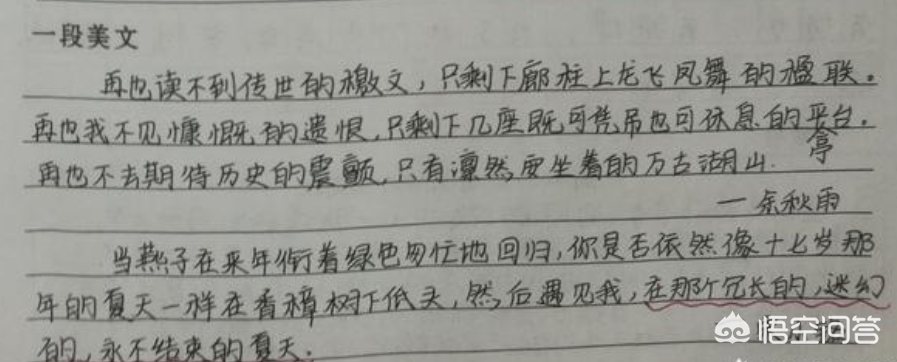 一段美文
再也读不到传世的檄文，只剩下廊柱上龙飞凤舞的楹联。
再也我不见慷慨的遗恨，只剩下几座既可凭吊也可休息的平台。
亭
再也不去期待历史的震颤，只有凛然安坐着的万古湖山.
— 余秋雨
当燕子在来年衔着绿色匆忙地回归，你是否依然像十七岁那
年的夏天一样在香樟树下低头，然后遇见我，在那个冗长的，迷幻
的，永不结束的夏天.
悟空问答